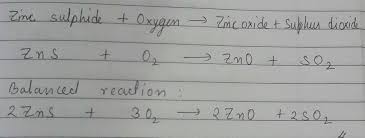 Zinc sulphide + Oxygen → Zinc oxide + Sulphur dioxide
ZnS + O₂ → ZnO + SO₂
Balanced reaction :
2ZnS + 3O₂ → 2ZnO + 2SO₂